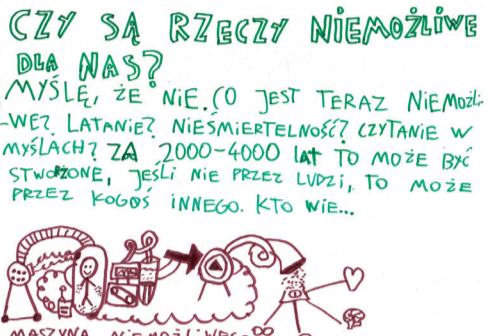 CZY SĄ RZECZY NIEMOŻLIWE
DLA NAS?
MYŚLĘ, ŻE NIE. CO JEST TERAZ NIEMOŻLI-
-WE? LATANIE? NIEŚMIERTELNOŚĆ? CZYTANIE W
MYŚLACH? ZA 2000-4000 LAT TO MOŻE BYĆ
STWORZONE, JEŚLI NIE PRZEZ LUDZI, TO MOŻE
PRZEZ KOGOŚ INNEGO. KTO WIE...
MASZYNA NIEMOŻLIWEGO